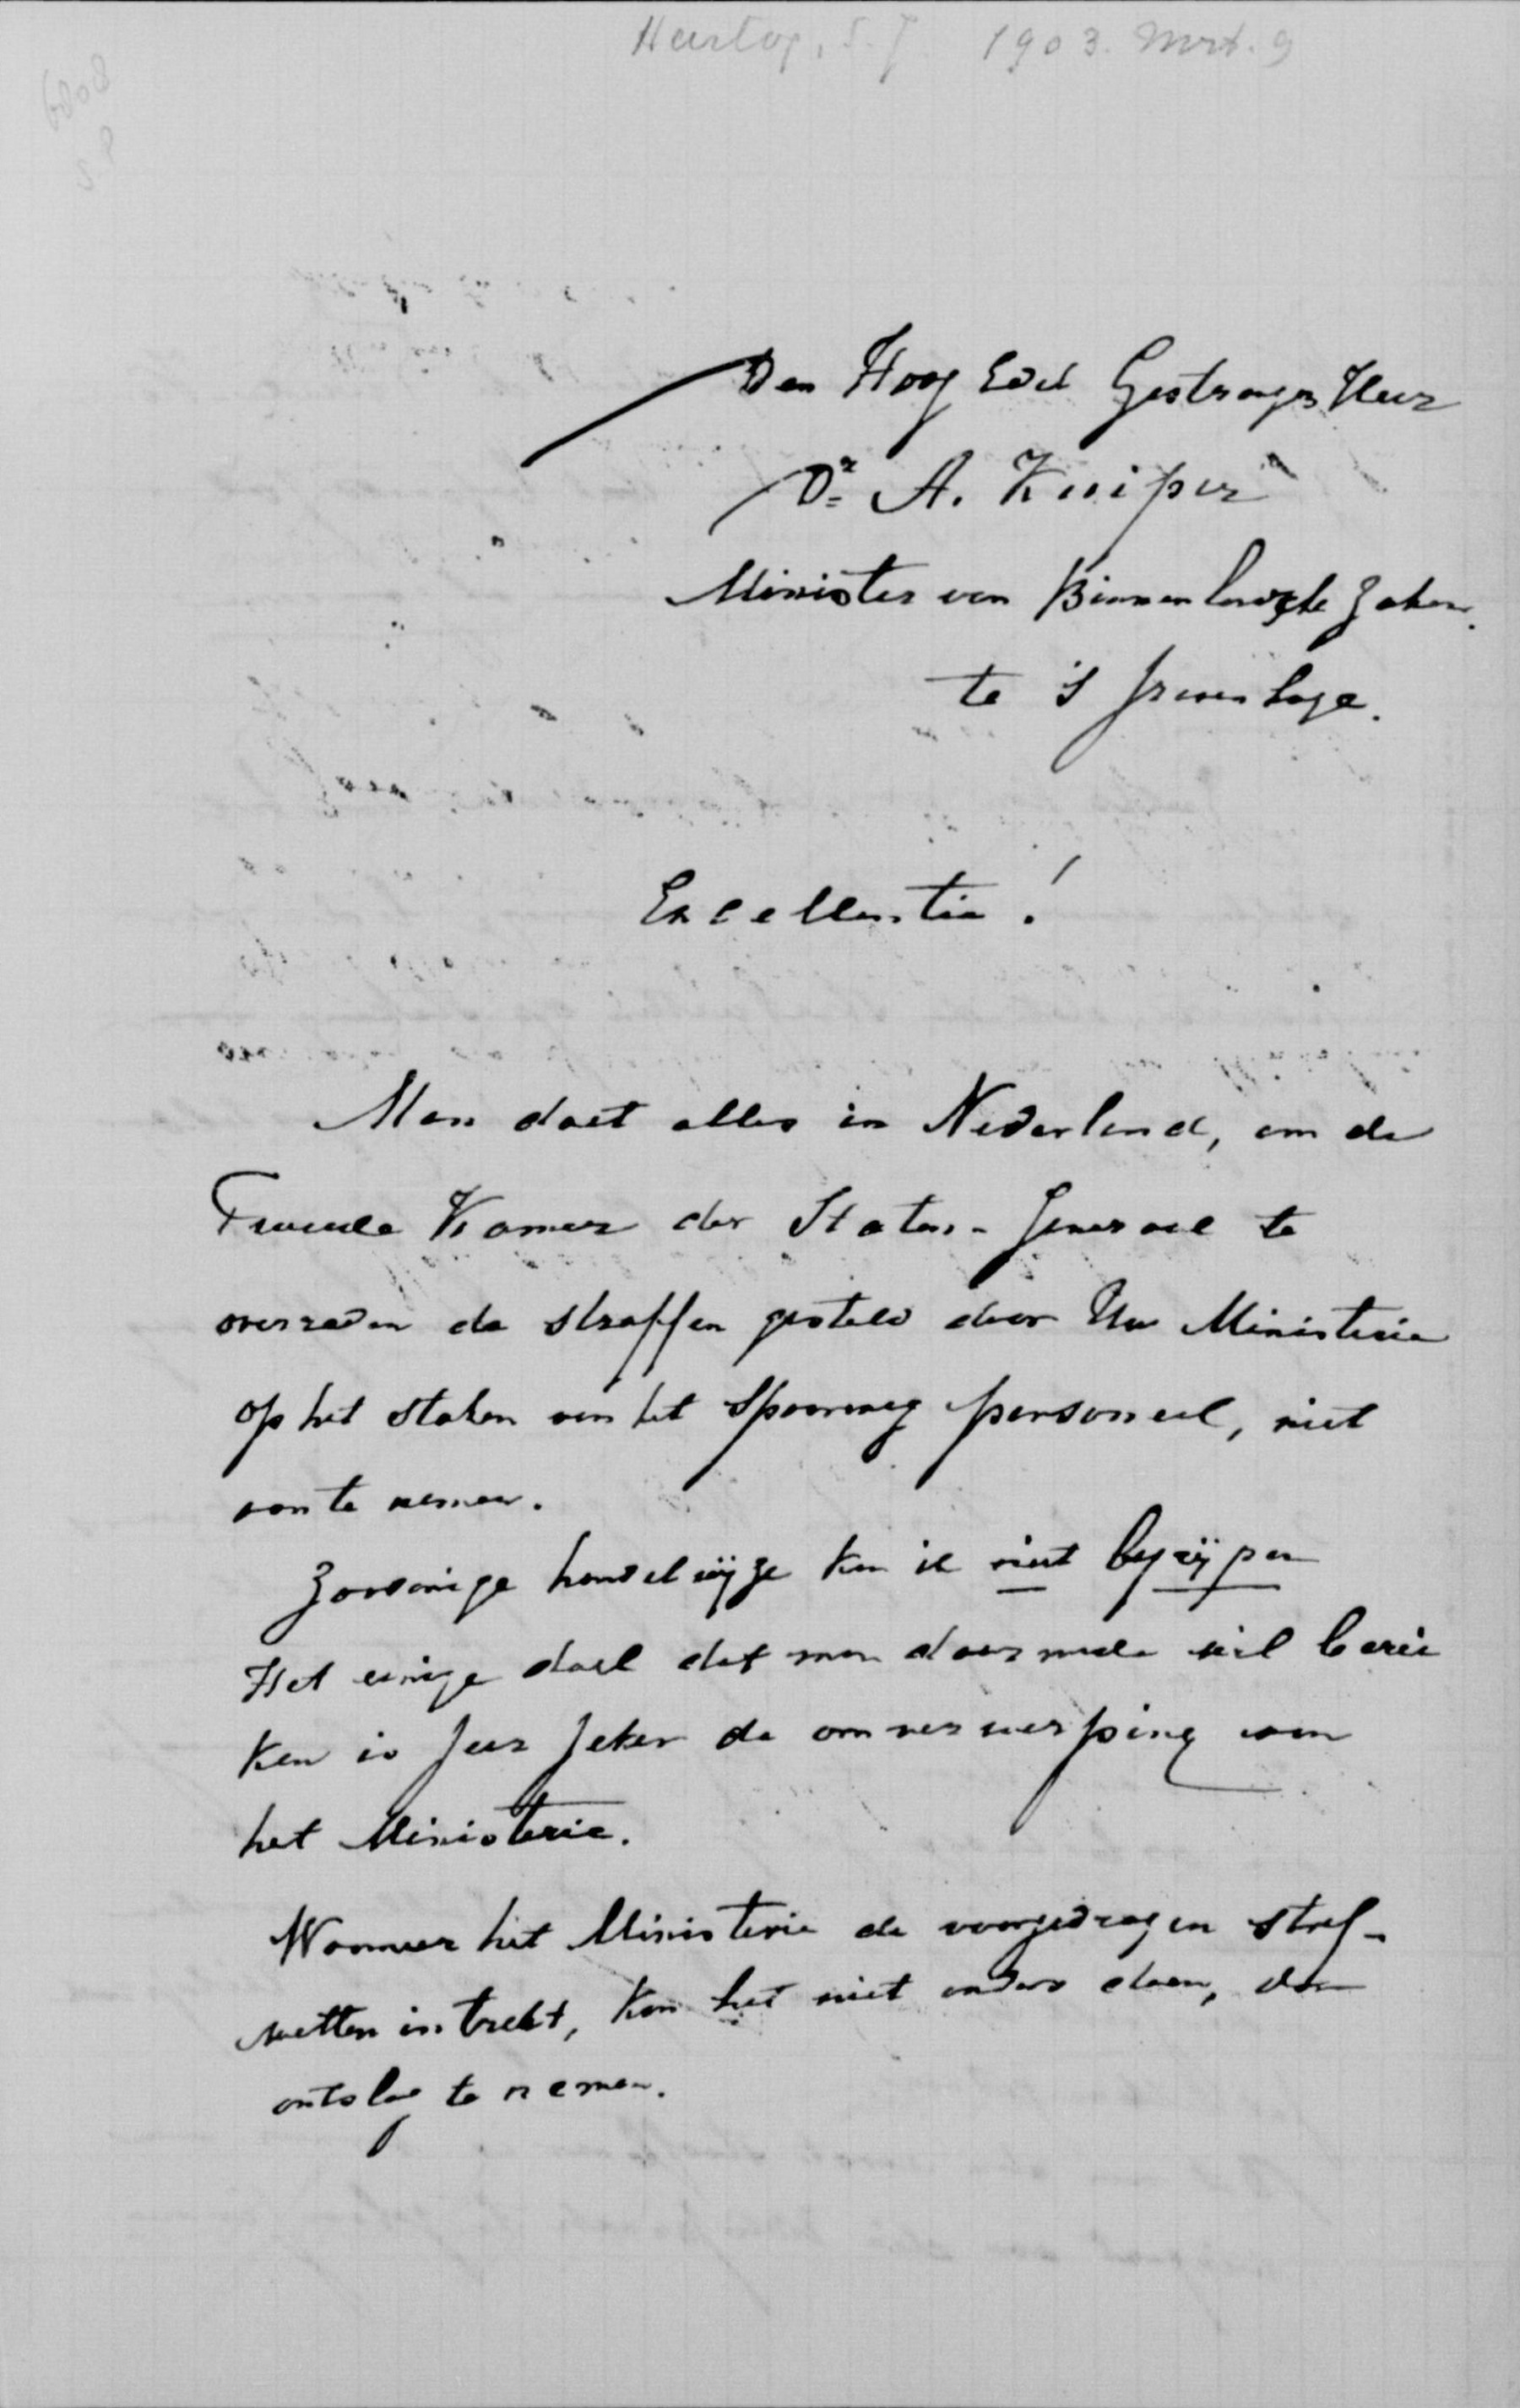 Hertog, S. J. 1903. Mrt. 9
8089
Den Hoog Edel Gestrengen Heer
Dr A. Kuiper
Minister van Binnenlandsche Zaken.
te 's Gravenhage.
Excellentie!
Men doet alles in Nederland, om de
Tweede Kamer der Staten-Generaal te
overreden de straffen gesteld door Uw Ministerie
op het staken van het Spoorweg personeel, niet
aan te nemen.
Zoodanige handelwijze kan ik niet begrijpen
Het eenige doel dat men daarmede wil berei
ken is zeer zeker de omverwerping van
het Ministerie.
Wanneer het Ministerie de voorgedragen straf-
wetten intrekt, kan het niet anders doen, dan
ontslag te nemen.